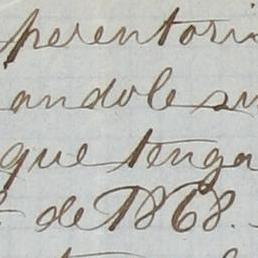 perentori
andole su
que tenga
de 1868.